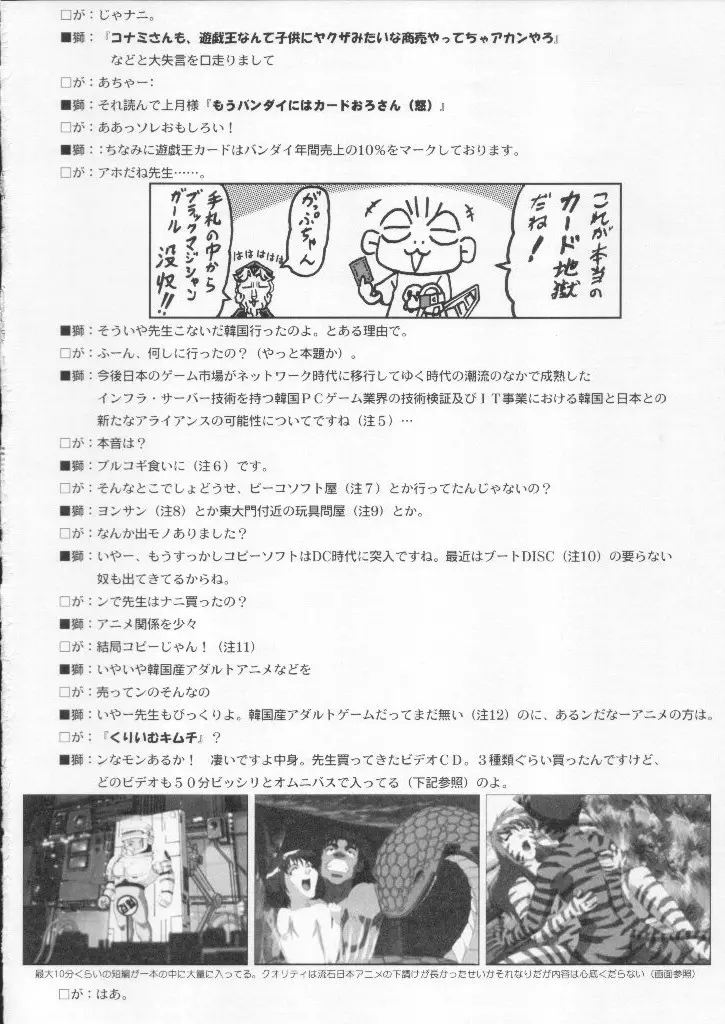 □が：じゃナニ。
■獅：『コナミさんも、遊戯王なんて子供にヤクザみたいな商売やってちゃアカンやろ』
などと大失言を口走りまして
□が：あちゃー：
■獅：それ読んで上月様『もうバンダイにはカードおろさん（怒）』
□が：ああっソレおもしろい！
■獅：：ちなみに遊戯王カードはバンダイ年間売上の10％をマークしております。
□が：アホだね先生……。
これが本当の
カード地獄
だね！
がっぷちゃん
はははははは
手札の中から
ブラックマジシャン
ガール 没収!!
■獅：そういや先生こないだ韓国行ったのよ。とある理由で。
□が：ふーん、何しに行ったの？（やっと本題か）。
■獅：今後日本のゲーム市場がネットワーク時代に移行してゆく時代の潮流のなかで成熟した
インフラ・サーバー技術を持つ韓国ＰＣゲーム業界の技術検証及びＩＴ事業における韓国と日本との
新たなアライアンスの可能性についてですね（注５）…
□が：本音は？
■獅：プルコギ食いに（注６）です。
□が：そんなとこでしょどうせ、ピーコソフト屋（注７）とか行ってたんじゃないの？
■獅：ヨンサン（注8）とか東大門付近の玩具問屋（注9）とか。
□が：なんか出モノありました？
■獅：いやー、もうすっかしコピーソフトはDC時代に突入ですね。最近はブートDISC（注10）の要らない
奴も出てきてるからね。
□が：ンで先生はナニ買ったの？
■獅：アニメ関係を少々
□が：結局コピーじゃん！（注11）
■獅：いやいや韓国産アダルトアニメなどを
□が：売ってンのそんなの
■獅：いやー先生もびっくりよ。韓国産アダルトゲームだってまだ無い（注12）のに、あるンだなーアニメの方は。
□が：『くりいむキムチ』？
■獅：ンなモンあるか！　凄いですよ中身。先生買ってきたビデオＣＤ。３種類ぐらい買ったんですけど、
どのビデオも５０分ビッシリとオムニバスで入ってる（下記参照）のよ。
最大10分くらいの短編が一本の中に大量に入ってる。クオリティは流石日本アニメの下請けが長かったせいかそれなりだが内容は心底くだらない（画面参照）
□が：はあ。